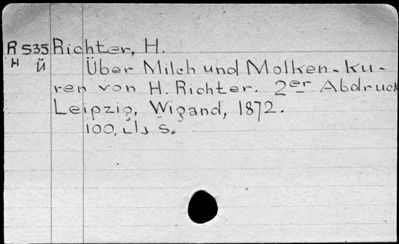 R 535 Richter, H.
H Ü Über Milch und Molken-ku-
ren von H. Richter. 2er Abdruck
Leipzig, Wigand, 1872.
100, S.